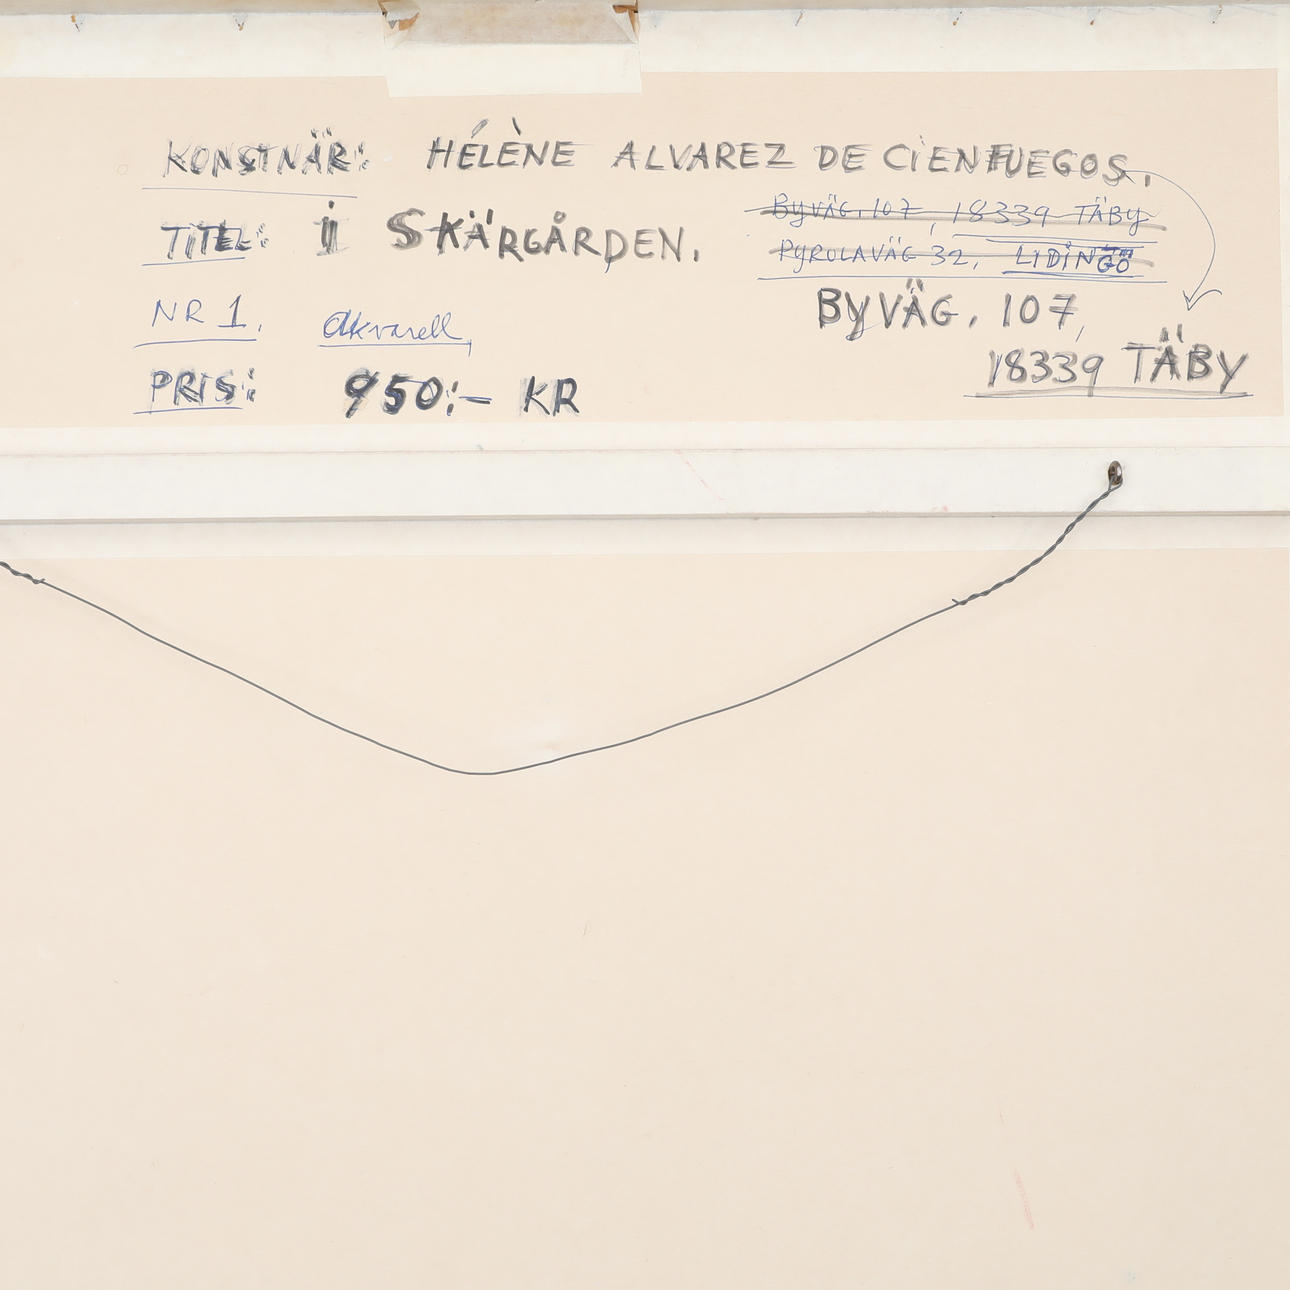 KONSTNÄR: HÉLÈNE ALVAREZ DE CIENFUEGOS.
BYVÄG. 107, 18339 TÄBY
TITEL: i SKÄRGÅRDEN.
PYROLAVÄG 32, LIDINGÖ
NR 1. akvarell,
BYVÄG. 107,
18339 TÄBY
PRIS: 950:- KR